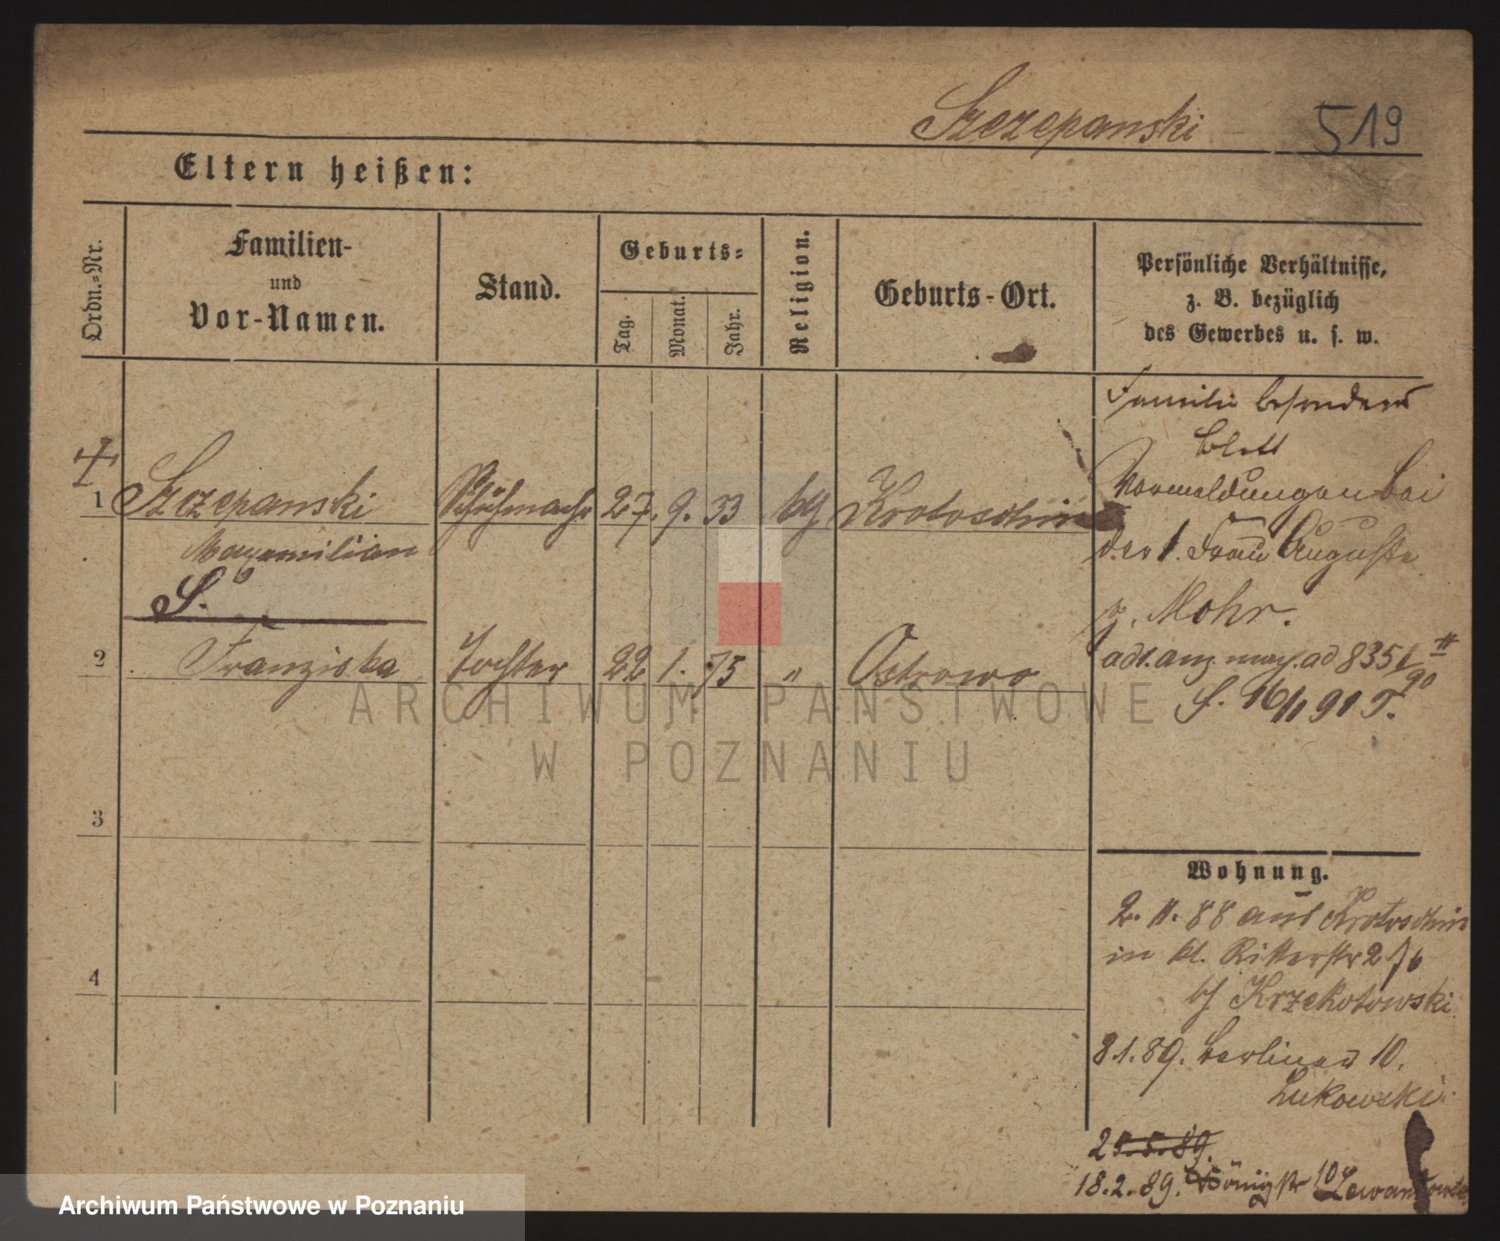 Szczepanski 519
Eltern heißen:
Ordn.-Nr.
Familien-
und
Vor-Namen.
Stand.
Geburts-
Tag.
Monat.
Jahr.
Religion.
Geburts-Ort.
Persönliche Verhältnisse,
z. B. bezüglich
des Gewerbes u. s. w.
Familie besonders
Blatt
1 Szczepanski Schuhmacher 27. 9. 33 kth Krotoschin
Maxymilian
S.
Vormeldungen bei
der 1. Frau Auguste
g. Mohr.
2 Franziska Tochter 22 1. 75 " Ostrowo
S. 16/11 91 T.
3
4
Wohnung.
2. 11. 88 aus Krotoschin
in kl. Ritterstr 2
bei Krzekotowski
8.1.89. Berliner 10.
Lukowski
18.2.89. Königstr 10 Lewandowski
ARCHIWUM PAŃSTWOWE
W POZNANIU
Archiwum Państwowe w Poznaniu